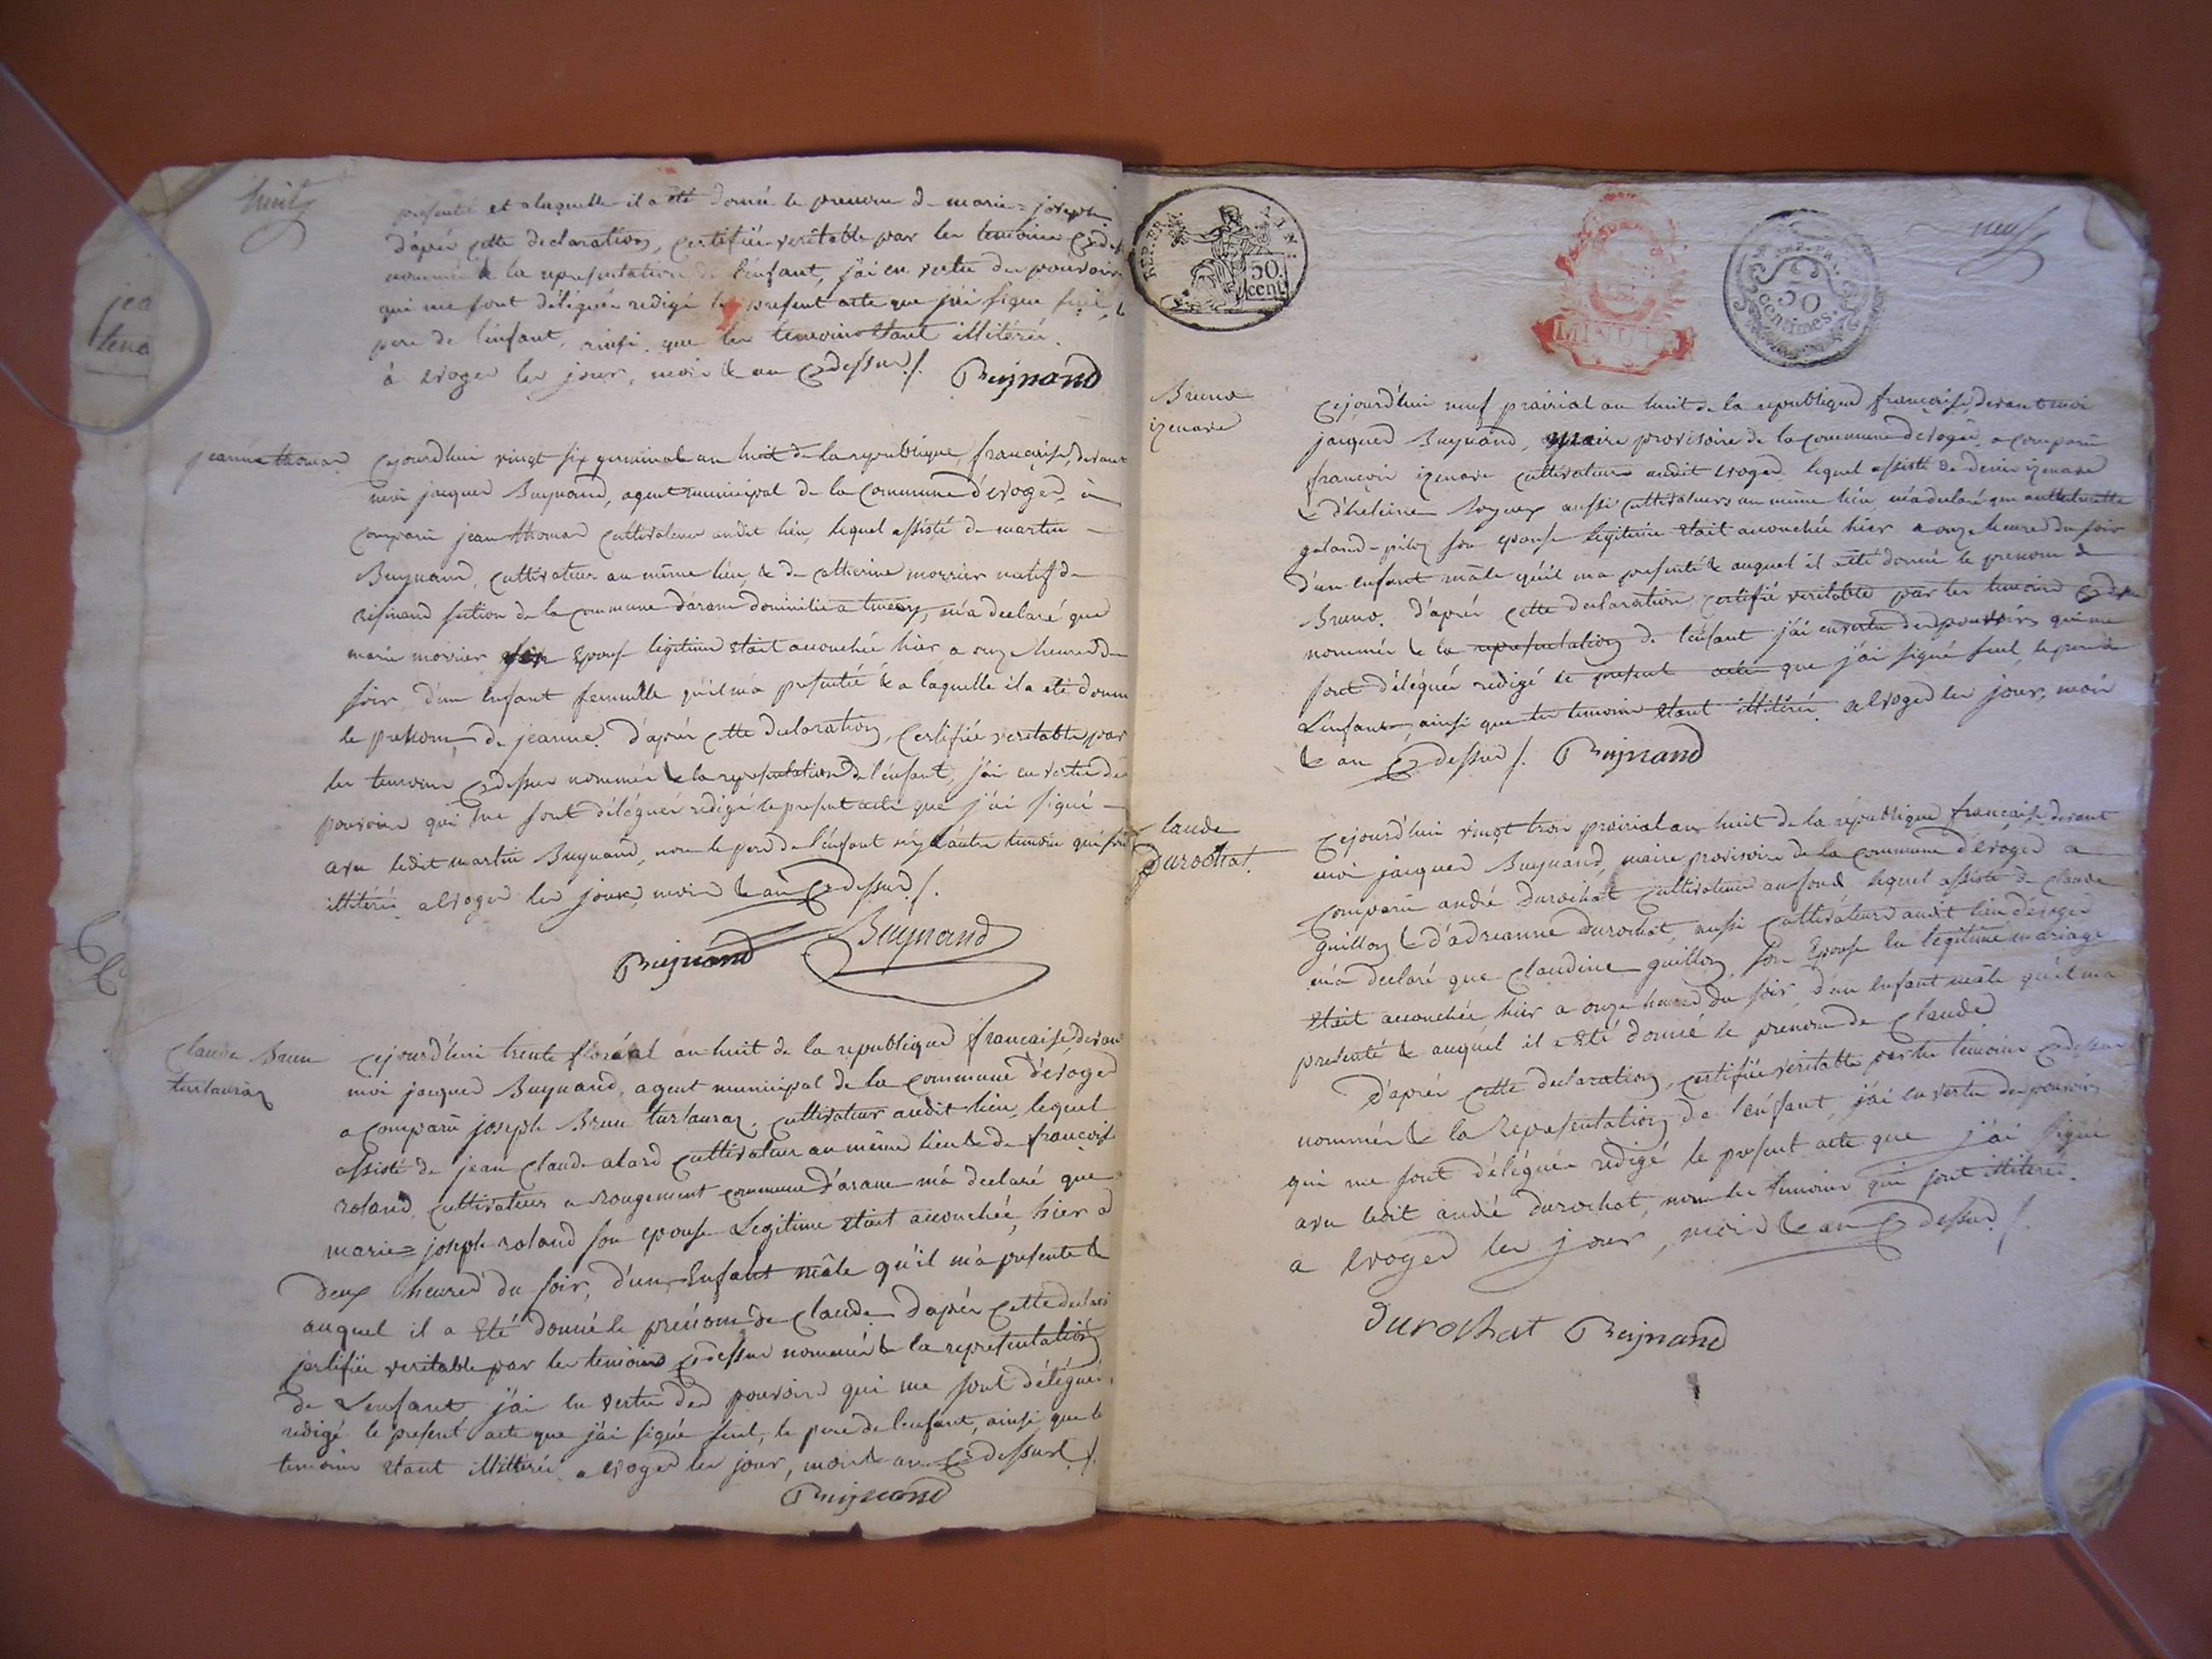 huit
presentée et a laquelle il a été donné le prenom de marie = joseph
d'après cette declaration, certifiée veritable par les temoins cydessus
nommés & la representation de l'enfant, j'ai en vertu des pouvoirs
qui me sont délégués redigé le present acte que j'ai signé seul, le
pere de l'enfant, ainsi que les temoins étant illitérés.
à evoges les jour, mois & an cydessus /. Buynand
jeanne thomas
cejourd'hui vingt six germinal an huit de la republique française, devant
moi jacques Buynand, agent municipal de la commune d'evoges, a
comparu jean thomas cultivateur audit lieu, lequel assisté de martin
Buynand, cultivateur au même lieu & de catherine morrier natif de
section de la commune d'arane domicilié a m'a declaré que
marie morrier son epouse légitime était accouchée hier a onze heures du
soir, d'un enfant femelle qu'il m'a presenté & a laquelle il a été donné
le prenom de jeanne. d'après cette declaration, certifiée veritable par
les temoins cydessus nommés & la representation de l'enfant, j'ai en vertu des
pouvoirs qui me sont délégués redigé le present acte que j'ai signé
avec ledit martin Buynand, non le pere de l'enfant ny l'autre temoin qui sont
illitérés a evoges les jour, mois & an cydessus /.
Buynand Buynand
Claude Brun
turlauraz
cejourd'hui trente floréal an huit de la republique française devant
moi jacques Buynand, agent municipal de la commune d'évoges
a comparu joseph Brun turlauraz, cultivateur audit lieu, lequel
assisté de jean claude alard cultivateur au même lieu & de françois
roland, cultivateur a rougemont commune d'arane m'a declaré que
marie = joseph roland son epouse Legitime était accouchée, hier a
Deux heures du soir, d'un Enfant mâle qu'il m'a presenté &
auquel il a Eté donné le prénom de claude D'après cette declaration
certifiée veritable par les temoins cydessus nommés & la representation
de L'enfant j'ai en vertu des pouvoirs qui me sont délégués,
redigé le present acte que j'ai signé seul, le pere de l'enfant, ainsi que les
temoins étant illitérés a evoges les jour, mois & an cydessus /.
Buynand
REP. FRA.
50. cent.
MINUTE
REP. FRA.
50 centimes.
neuf
Bruno
izenare
cejourd'hui neuf prairial an huit de la republique française, devant moi
jacques Buynand, maire provisoire de la commune d'evoges, a comparu
françois izenare cultivateur audit evoges lequel assisté de denis izenare
& d'heleine aussi cultivateurs au même lieu, m'a declaré que
galand = piloz son epouse légitime était accouchée hier a onze heures du soir
d'un enfant mâle qu'il m'a presenté & auquel il a été donné le prenom de
Bruno. D'après cette declaration, certifié veritable par les temoins cydessus
nommés & la representation de l'enfant j'ai en vertu des pouvoirs qui me
sont délégués redigé le present acte que j'ai signé seul, le pere de
L'enfant, ainsi que les temoins étant illitérés a evoges les jour, mois
& an cydessus /. Buynand
claude
Durochat.
cejourd'hui vingt trois prairial an huit de la république française devant
moi jacques Buynand, maire provisoire de la commune d'évoges a
comparu andré Durochat cultivateur au fond lequel assisté de claude
guilloz & d'adrianne Durochat, aussi cultivateurs audit lieu d'evoges
m'a declaré que claudine guilloz, son Epouse en legitime mariage
était accouchée hier a onze heures du soir, d'un enfant mâle qu'il m'a
presenté & auquel il a été donné le prenom de claude
D'après cette declaration, certifiée véritable par les temoins cydessus
nommés & la representation de l'enfant j'ai en vertu des pouvoirs
qui me sont délégués redigé le present acte que j'ai signé
avec ledit andré Durochat, non les temoins qui sont illiterés.
a evoges les jour, mois & an cydessus /
durochat Buynand